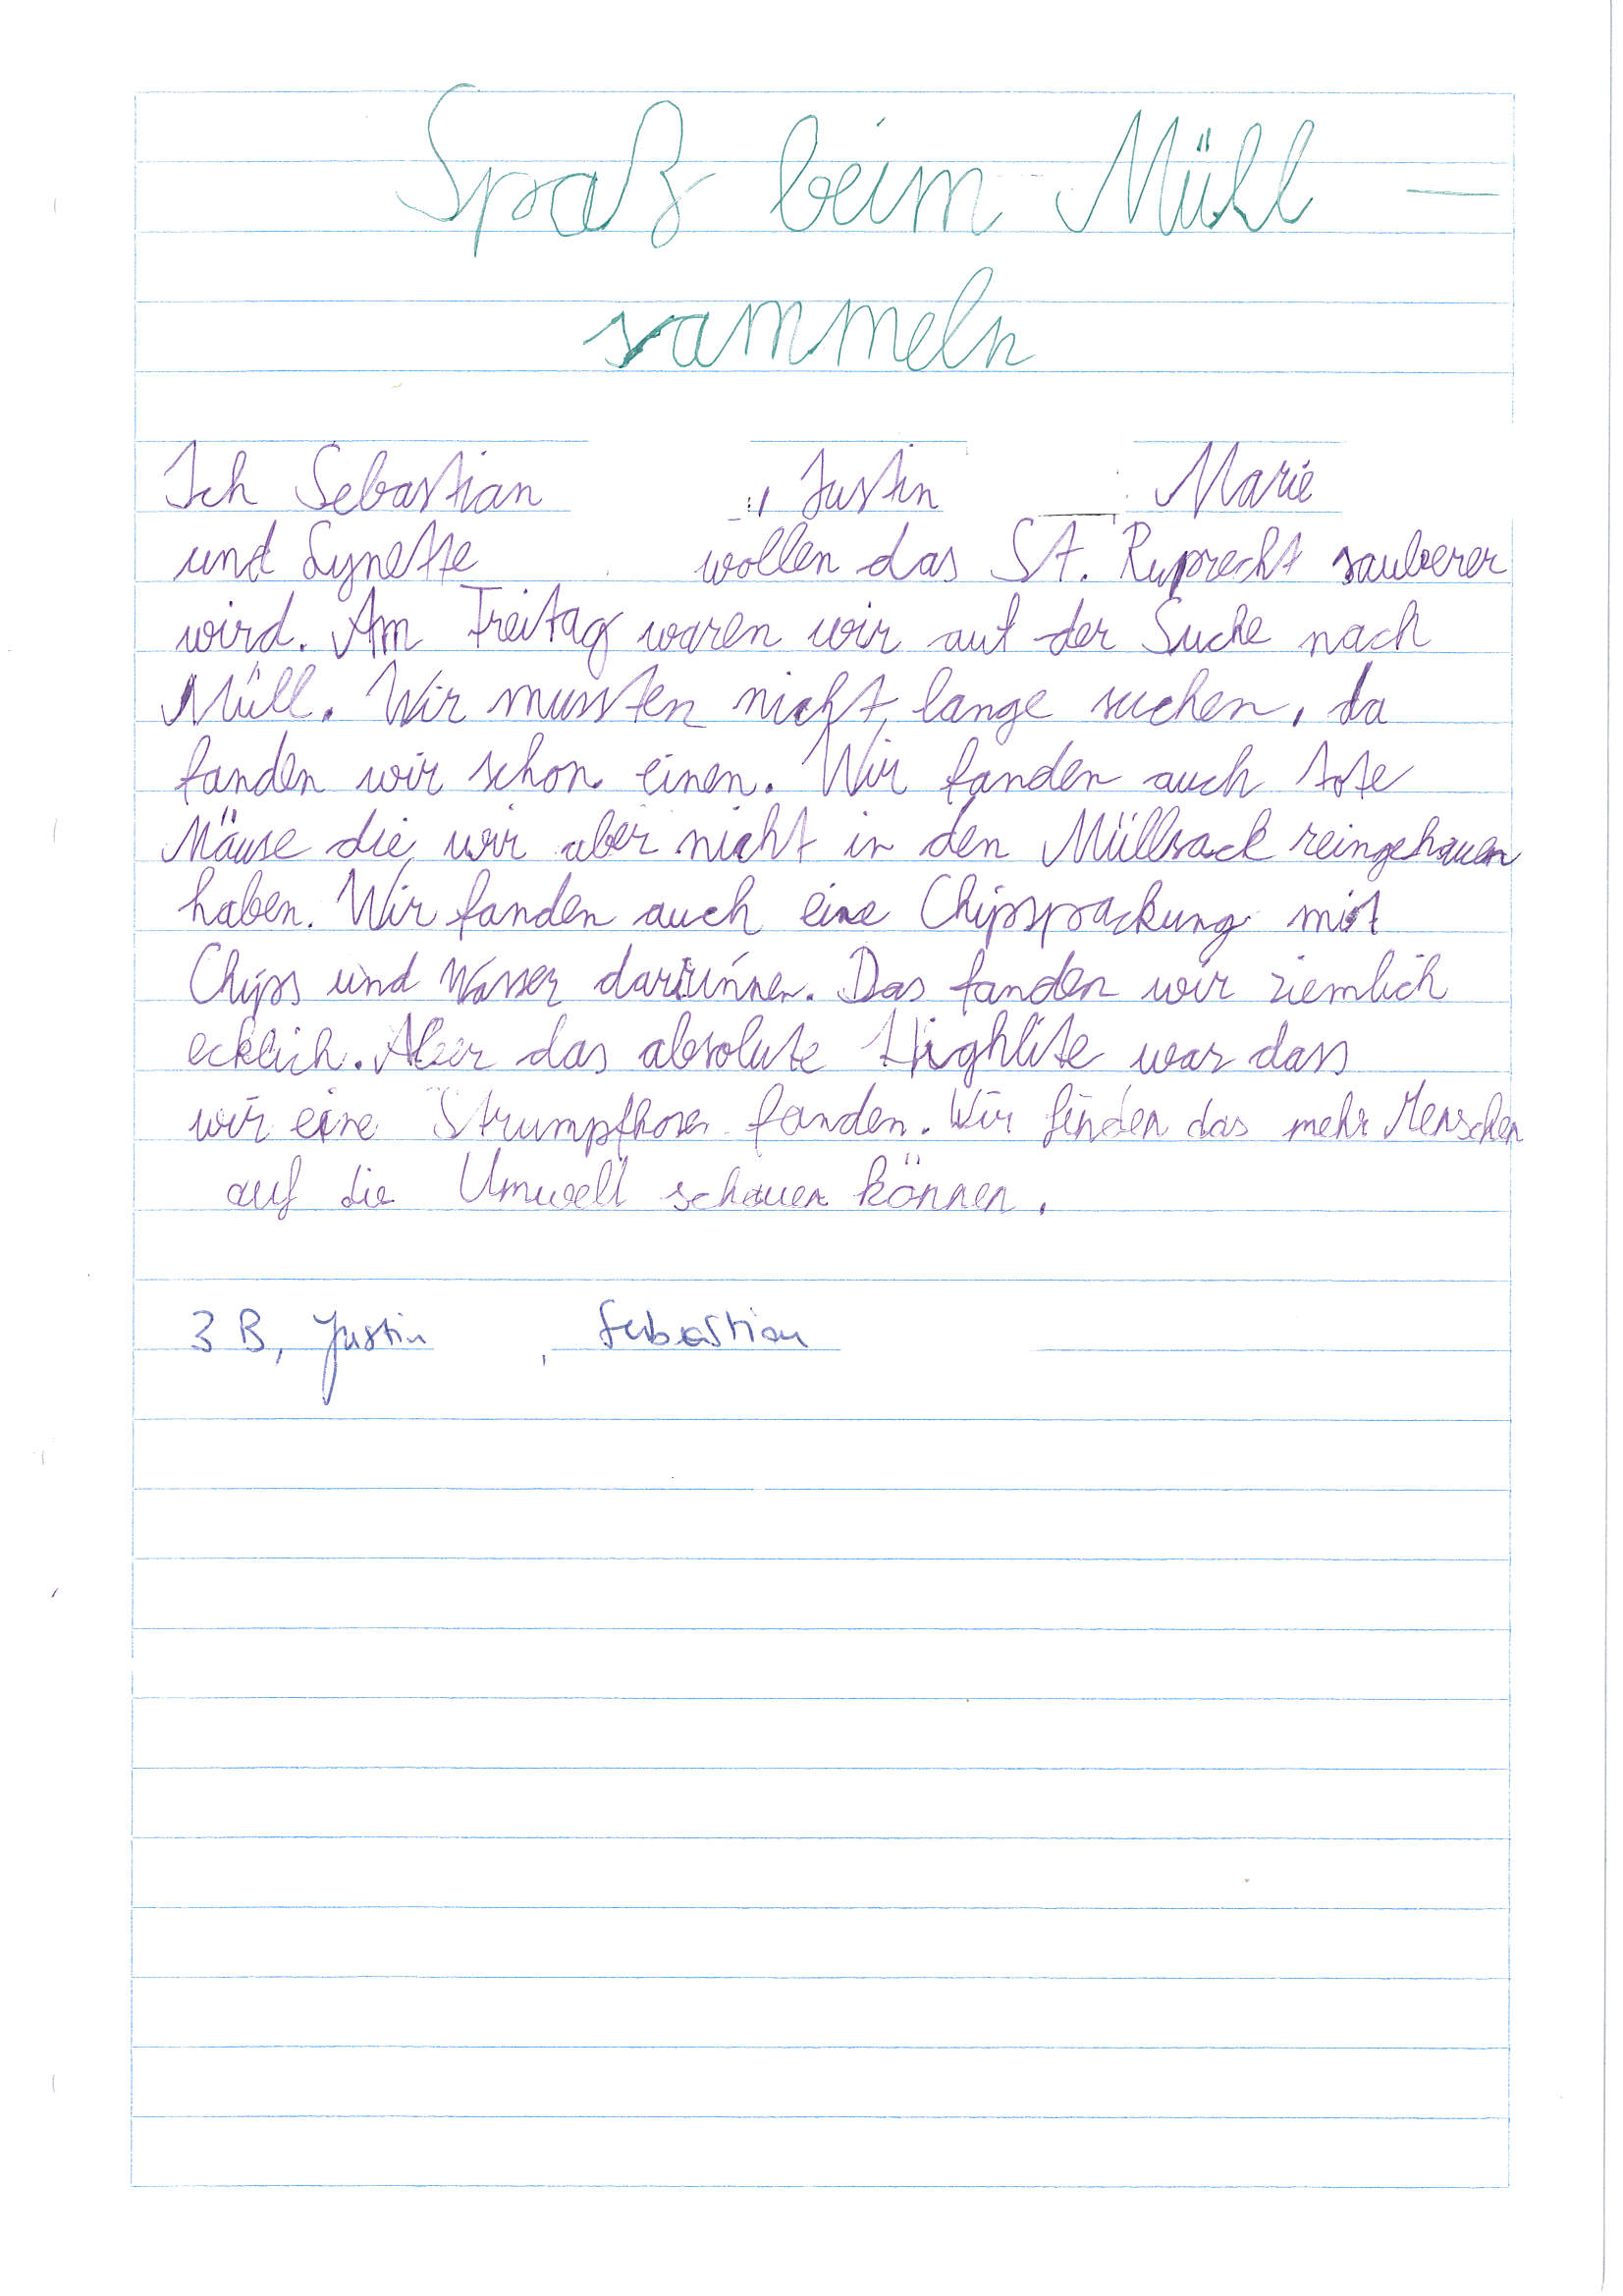 Spaß beim Mühl-
sammeln
Ich Sebastian , Justin Marie
und Lynette wollen das St. Ruprecht sauberer
wird. Am Freitag waren wir auf der Suche nach
Müll. Wir mussten nicht lange suchen, da
fanden wir schon einen. Wir fanden auch tote
Mäuse die wir aber nicht in den Müllsack reingehauen
haben. Wir fanden auch eine Chipspackung mit
Chips und Wasser darinnen. Das fanden wir ziemlich
ecklich. Aber das absolute Highlite war dass
wir eine Strumpfhose fanden. Wir finden das mehr Menschen
auf die Umwelt schauen können.
3 B, Justin , Sebastian